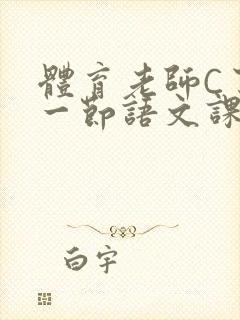 體育老師C
一節語文課
白宇